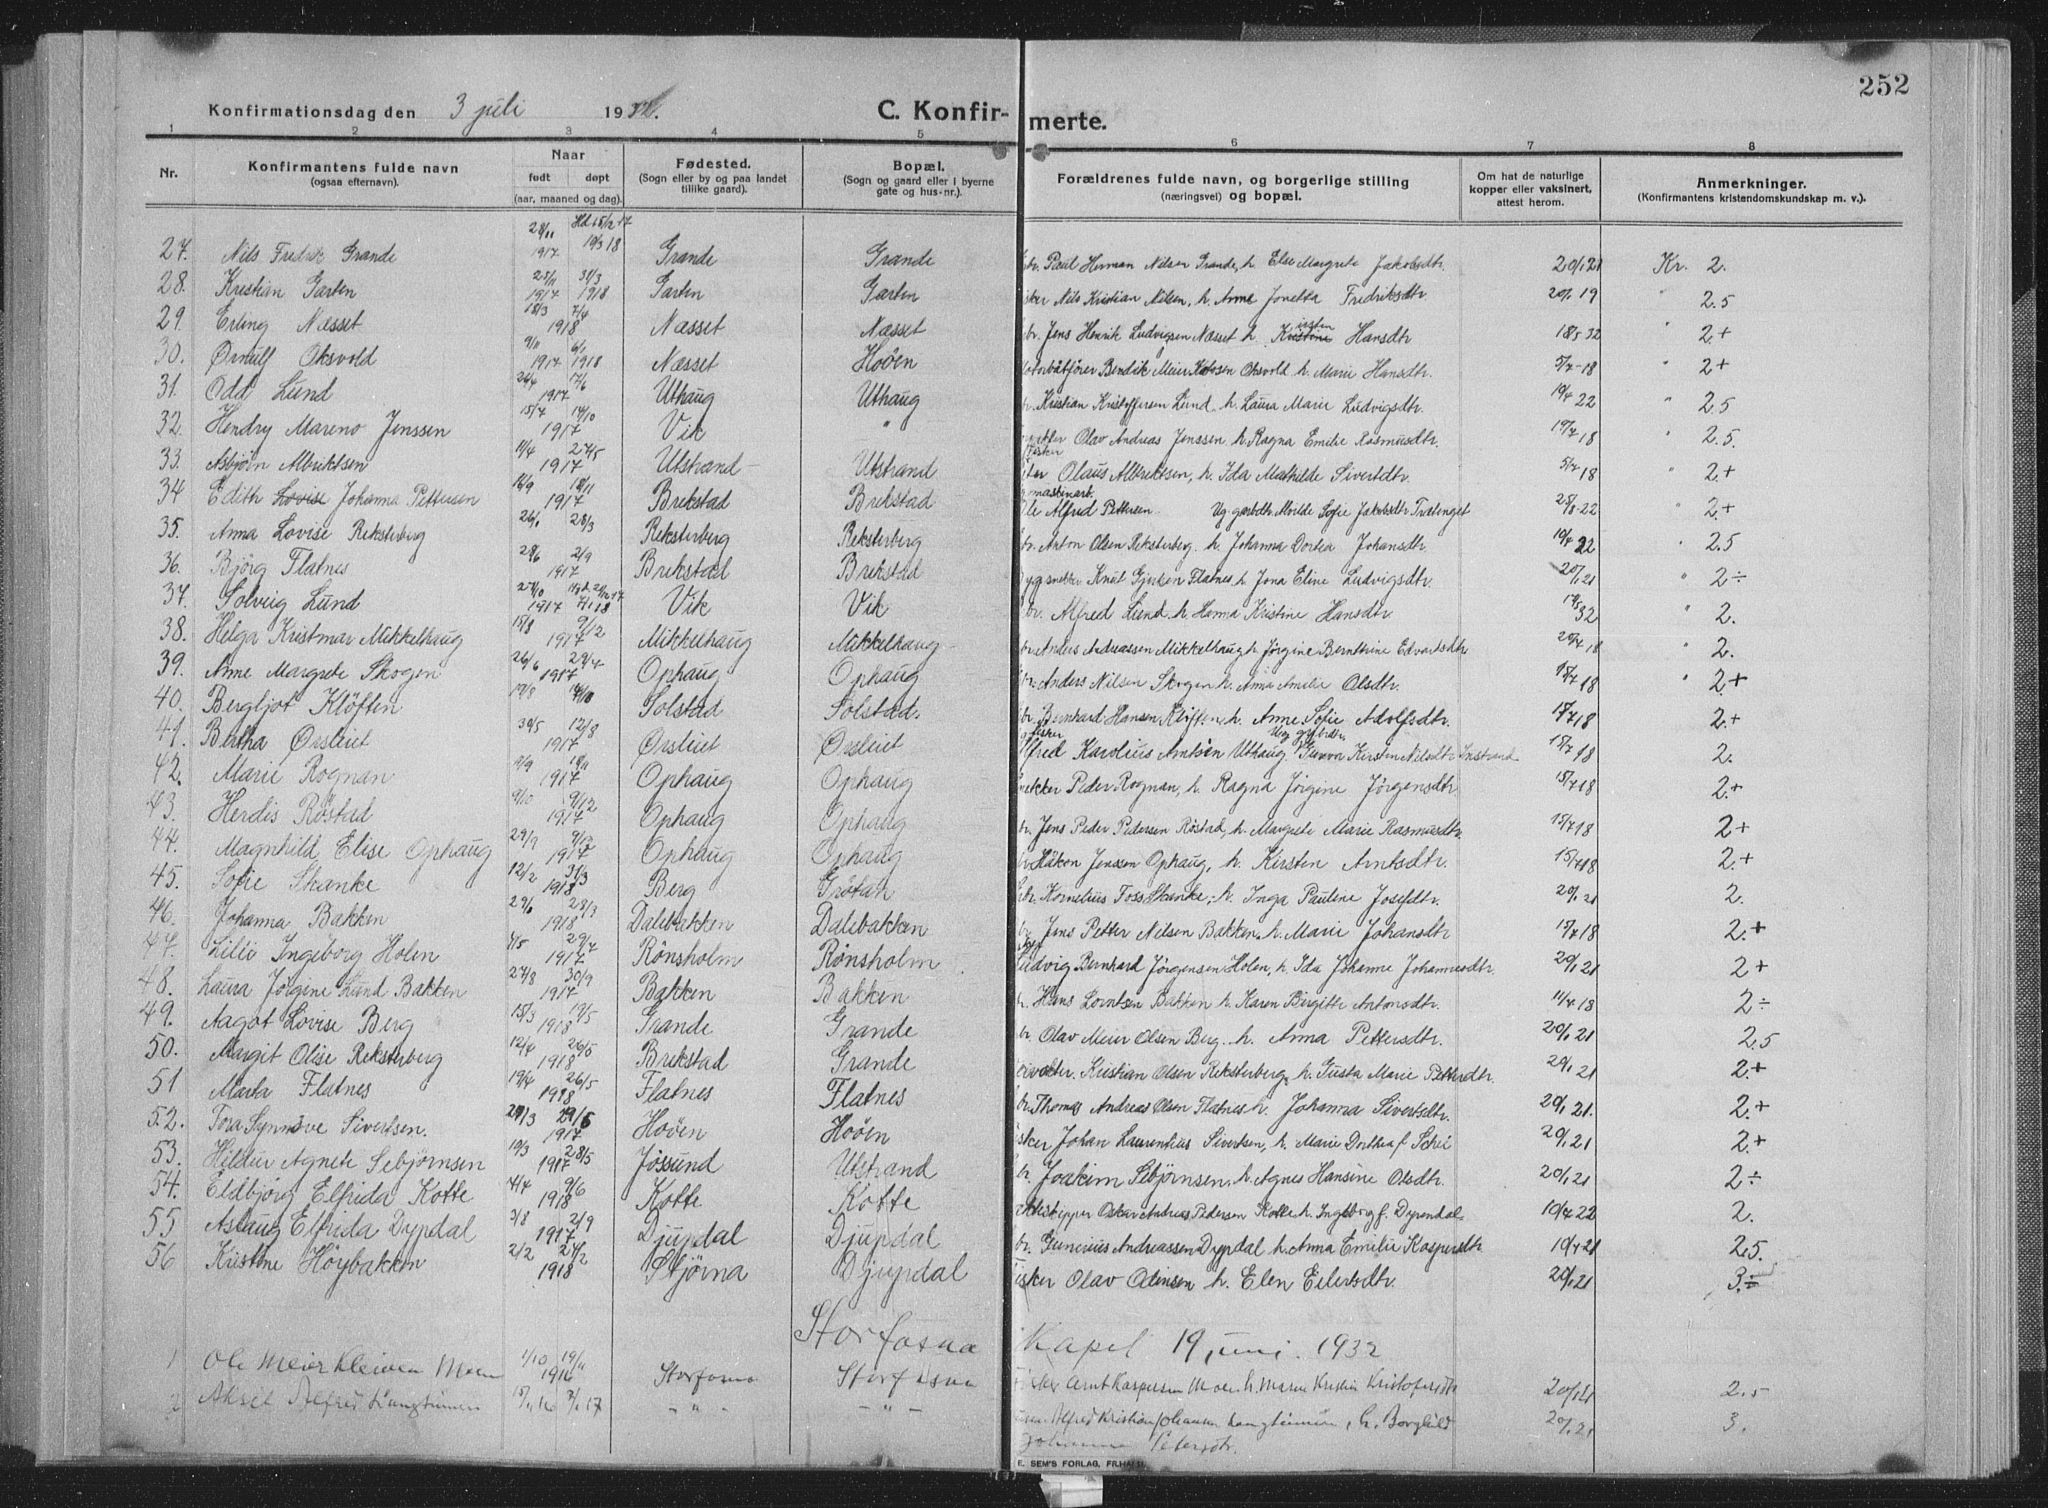 252
Konfirmationsdag den 3 juli 1932. C. Konfir- merte.
1 2 3 4 5 6 7 8
Nr. Konfirmantens fulde navn (ogsaa efternavn). Naar født døpt (aar, maaned og dag). Fødested. (Sogn eller by og paa landet tillike gaard). Bopæl. (Sogn og gaard eller i byerne gate og hus-nr.). Forældrenes fulde navn, og borgerlige stilling (næringsvei) og bopæl. Om hat de naturlige kopper eller vaksinert, attest herom. Anmerkninger. (Konfirmantens kristendomskundskap m. v.).
27. Nils Fredrik Grande 28/11 1917 Hd 15/12 17 10/3 18 Grande Grande Paul Herman Nilsen Grande, h. Else Margrete Jakobsdtr. 20/1 21 Kr. 2.
28. Kristian Garten 25/11 1917 31/3 1918 Garten Garten Nils Kristian Nilsen, h. Anne Jonetta Fredriksdtr. 20/1 19 " 2.5
29. Erling Næsset 18/3 7/4 1918 Næsset Næsset Jens Henrik Ludvigsen Næsset h. Kristine Hansdtr 18/5 32 " 2+
30. Ørnulf Oksvold 9/11 1917 6/1 1918 Næsset Hoøen Bendik Meier Oksvold h. Marie Hansdtr. 5/7-18 " 2+
31. Odd Lund 26/4 17/6 1917 Uthaug Uthaug Kristian Kristoffersen Lund, h. Laura Marie Ludvigsdtr. 19/4 22 " 2.5
32. Hendry Mareno Jenssen 15/7 14/10 1917 Vik " Olav Andreas Jenssen h. Ragna Emilie Rasmusdtr. 17/7 18 " 2.5.
33. Asbjørn Albriktsen 11/4 27/5 1917 Utstrand Utstrand Olaus Albrektsen, h. Ida Mathilde Sivertsdtr. 5/7 18 " 2.+
34 Edith Lovise Johanna Pettersen 16/9 18/11 1917 Brekstad Brekstad maskinarb. Ole Alfred Pettersen. Ug. Sofie Jakobsdtr 28/3-22 " 2.+
35. Anna Lovise Reksterberg 26/1 28/3 Reksterberg Reksterberg Anton Olsen Reksterberg h. Johanna Dortea Johansdtr. 10/4 22 " 2.5
36. Bjørg Flatnes 28/6 2/9 1917 Brekstad Brekstad Knut Flatnes h. Jona Eline Ludvigsdtr. 20/1 21 " 2÷
37. Solveig Lund 27/10 1917 7/1 18 Vik Vik Alfred Lund h. Hanna Kristine Hansdtr. 32 " 2.
38. Helga Kristmar Mikkelhaug 15/8 9/12 1917 Mikkelhaug Mikkelhaug Anders Andreassen Mikkelhaug h. Jørgine Berntine Edvartsdtr 20/4 18 " 2.
39. Anne Margrete Skogen 26/6 29/7 1917 Ophaug Ophaug Anders Nilsen Skogen h. Anna Amelie Olsdtr. 15/7 18 " 2+
40. Bergljot Kløften 19/8 14/10 Solstad Solstad. Bernhard Hansen Kløften, h. Anne Sofie Adolfsdtr. 15/7 18 2.+
41. Bertha Ørsleiet 30/5 12/8 1917 Ørsleiet Ørsleiet Alfred Karolius Arntsen Uthaug, Gunva Kirsten Nilsdtr 15/7 18 2.
42. Marie Rognan 17/9 18/11 1917 Ophaug Ophaug Peder Rognan, h. Ragna Jørgine Jørgensdtr 15/7 18 2.+
43. Herdis Røstad 9/10 9/12 1917 Ophaug Ophaug Jens Peder Pedersen Røstad, h. Margrete Marie Rasmusdtr. 15/7 18 2+
44. Magnhild Elise Ophaug 29/9 9/12 1917 Ophaug Ophaug Håkon Jenssen Ophaug, h. Kirsten Arntsdtr. 15/7 18 2.+
45. Sofie Skanke 12/2 31/3 1918 Berg Grøtan Kornelius Foss Skanke, h. Inga Pauline Josefdtr. 20/1 21 2.
46. Johanna Bakken 28/3 1918 Dalebakken Dalebakken Jens Petter Nilsen Bakken, h. Marie Johansdtr 15/7 18 2.+
47. Lilli Ingeborg Holen 4/5 29/7 1917 Rønsholm Rønsholm Ludvig Bernhard Jørgensen Holen, h. Ida Johanne Johannesdtr. 20/1 21 2+
48. Laura Jørgine Lund Bakken 27/8 30/9 1917 Bakken Bakken Hans Lorntsen Bakken h. Karen Birgitte Antonsdtr. 11/4 18 2÷
49. Aagot Lovise Berg 15/3 19/5 1918 Grande Grande Olav Meier Olsen Berg. h. Anna Pettersdtr. 20/1 21 2.5
50. Margit Olise Reksterberg 12/4 26/5 1918 Brekstad Grande Kristian Olsen Reksterberg, h. Gusta Marie Pettersdtr. 20/1 21 2.+
51 Marta Flatnes 19/4 26/5 1918 Flatnes Flatnes Thomas Andreas Olsen Flatnes h. Johanna Sivertsdtr. 20/1 21. 2.+
52. Tora Synnøve Sivertsen. 1917 Hoøen Hoøen Johan Laurentius Sivertsen, h. Marie Dorthea f. 20/1 21 2.+
53. Hildur Agnete Sebjørnsen 19/3 28/5 1917 Jøssund Utstrand Joakim Sebjørnsen, h. Agnes Hansine Olsdtr. 20/1 21 2÷
54. Eldbjørg Elfrida Kotte 4/4 9/6 1918 Kotte Kotte Oskar Andreas Pedersen Kotte h. Ingeborg f. Dyrendal 10/4 22 2.
55 Aslaug Elfrida Dypdal 3/8 2/9 1917 Djupdal Djupdal Gunerius Andreassen Dypdal h. Anna Emilie Kaspersdtr 10/4 21 2.5.
56 Kristine Høybakken 2/2 1918 Stjørna Djupdal Olav Odinsen h. Elen Eilertsdtr. 20/1 21 3.÷
Storfosna Kapel 19 juni. 1932
1 Ole Meier Kleiven Moen 1/10 19/11 1916 Storfosna Storfosna Arnt Kaspersen Moen h. Maren Kristin Kristofersdtr 20/1 21 2.5
2 Aksel Alfred Langtinnen 15/11 16 17 - " - - " - Alfred Kristian Johansen Langtinnen, h. Borghild 20/1 21 3.
Johanne Petersdtr.
E. SEM'S FORLAG, FR.HALD